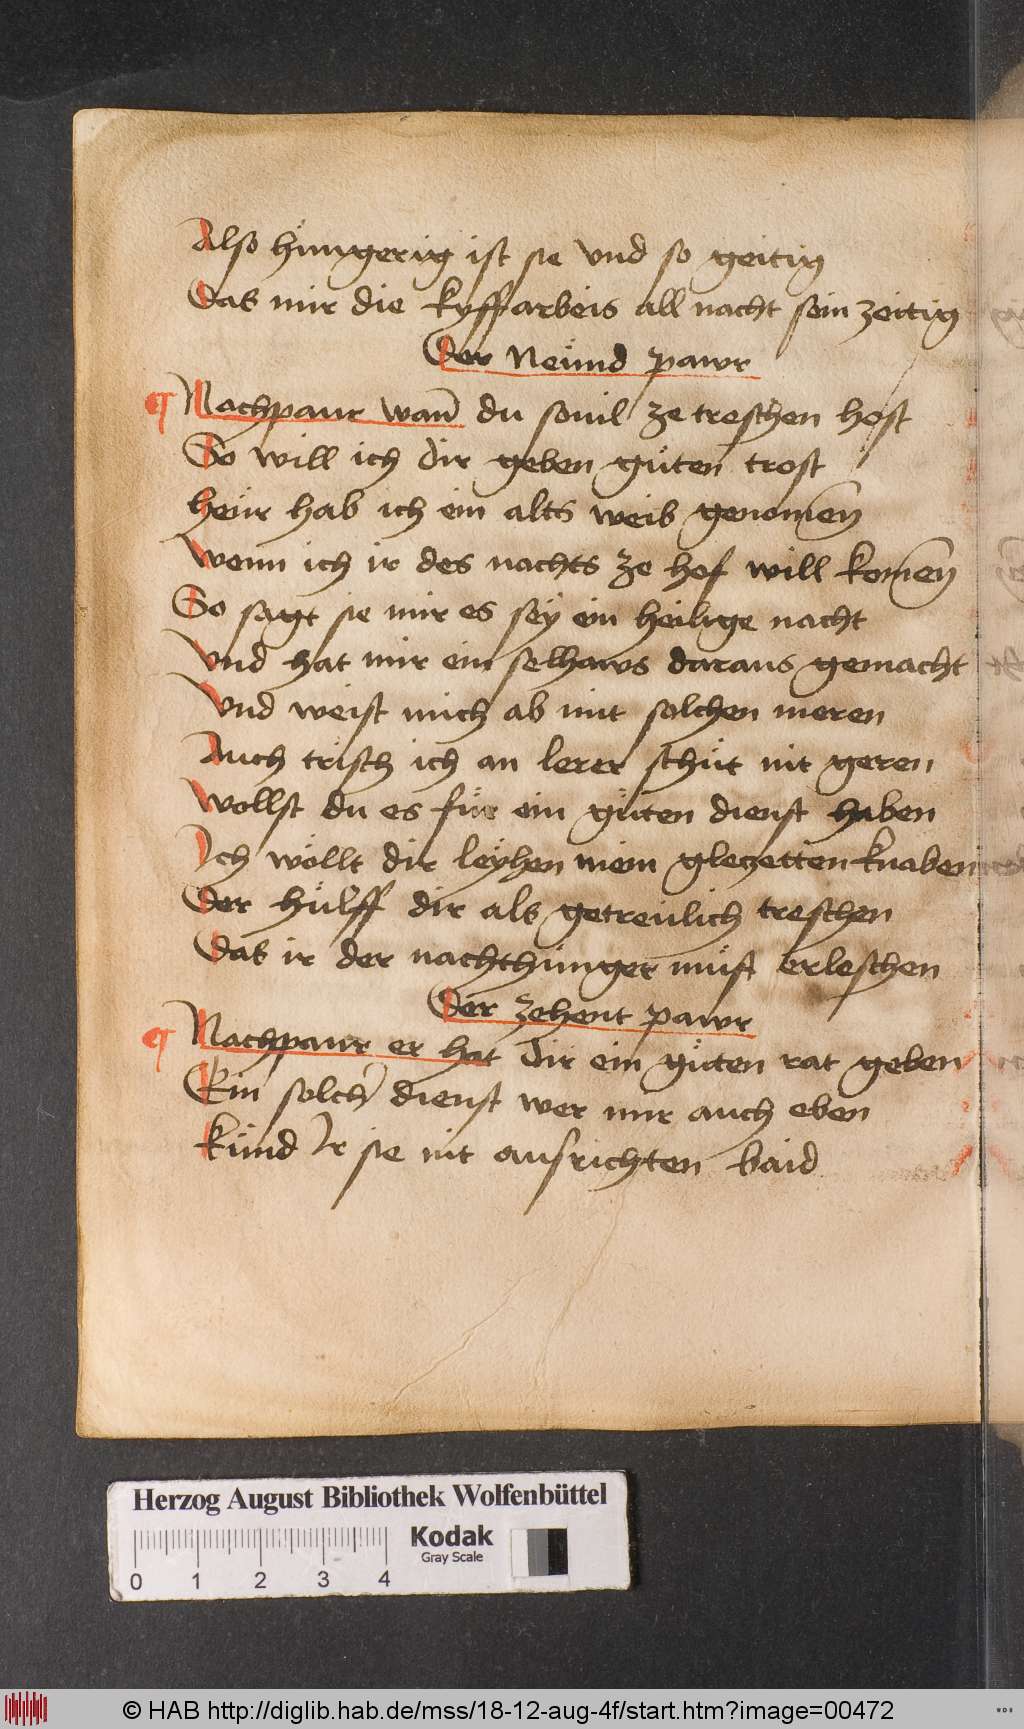 Also hůngerig ist sie vnd so geitig
Das mir die kyffarbeis all nacht sein zeitig
Der Neünd pawr
Nachpaur wan̄ du souil ze treschen host
So will ich dir geben gůten trost
heür hab ich ein alts weib genomen
Wenn ich ir des nachts ze hof will komen
So sagt sie mir es sey ein heilige nacht
Vnd hat mir ein selhaws daraus gemacht
Vnd weist mich ab mit solchen meren
Auch trisch ich an lerer schüt nit geren
Wollst du es für ein gůten dienst haben
Ich wöllt dir leyhen mein gleczetten knaben
Der hülff dir als getreülich treschen
Das ir der nachthunger müst erleschen
Der zehent pawr
Nachpaur er hat dir ein gůten rat geben
Ein solch' dienst wer mir auch eben
Künd Ir sie nit ausrichten baid
Herzog August Bibliothek Wolfenbüttel
Kodak
Gray Scale
0 1 2 3 4
© HAB http://diglib.hab.de/mss/18-12-aug-4f/start.htm?image=00472